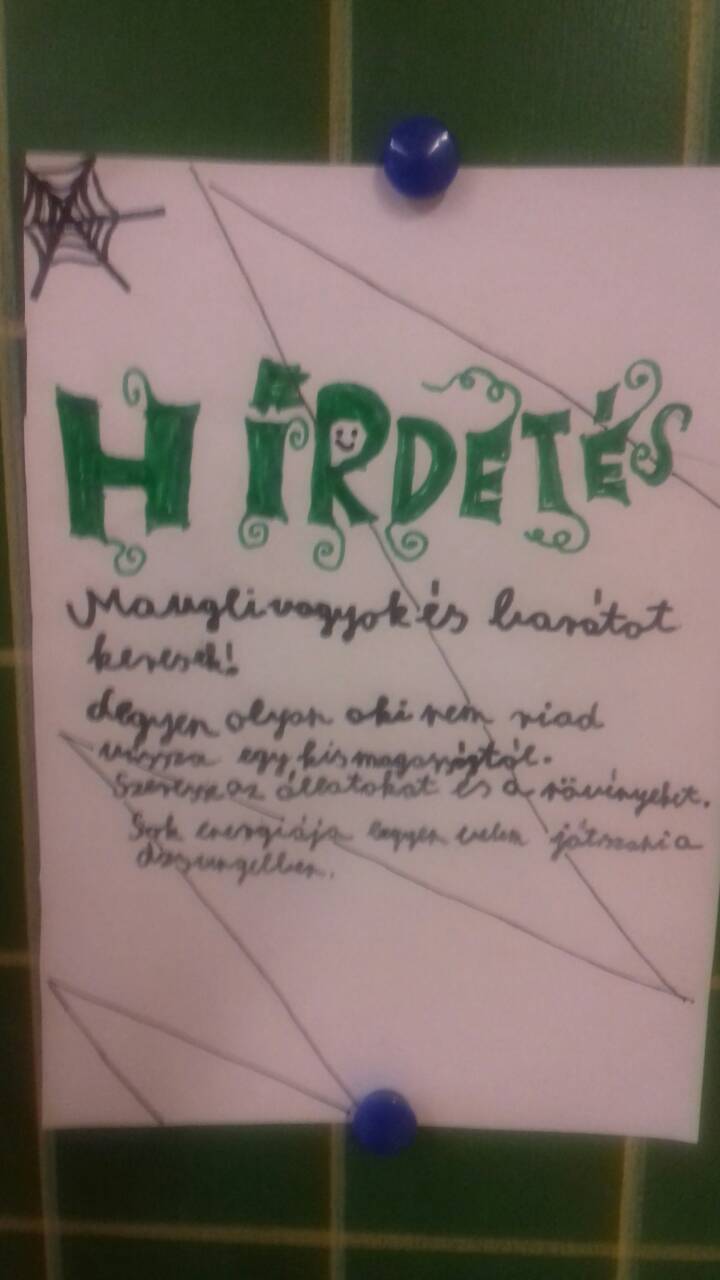 HÍRDETÉS
Maugli vagyok és barátot
keresek!
Legyen olyan aki nem riad
vissza egy kis magasságtól.
Szeresse az állatokat és a növényeket.
Sok energiája legyen velem játszani a
dzsungelben.